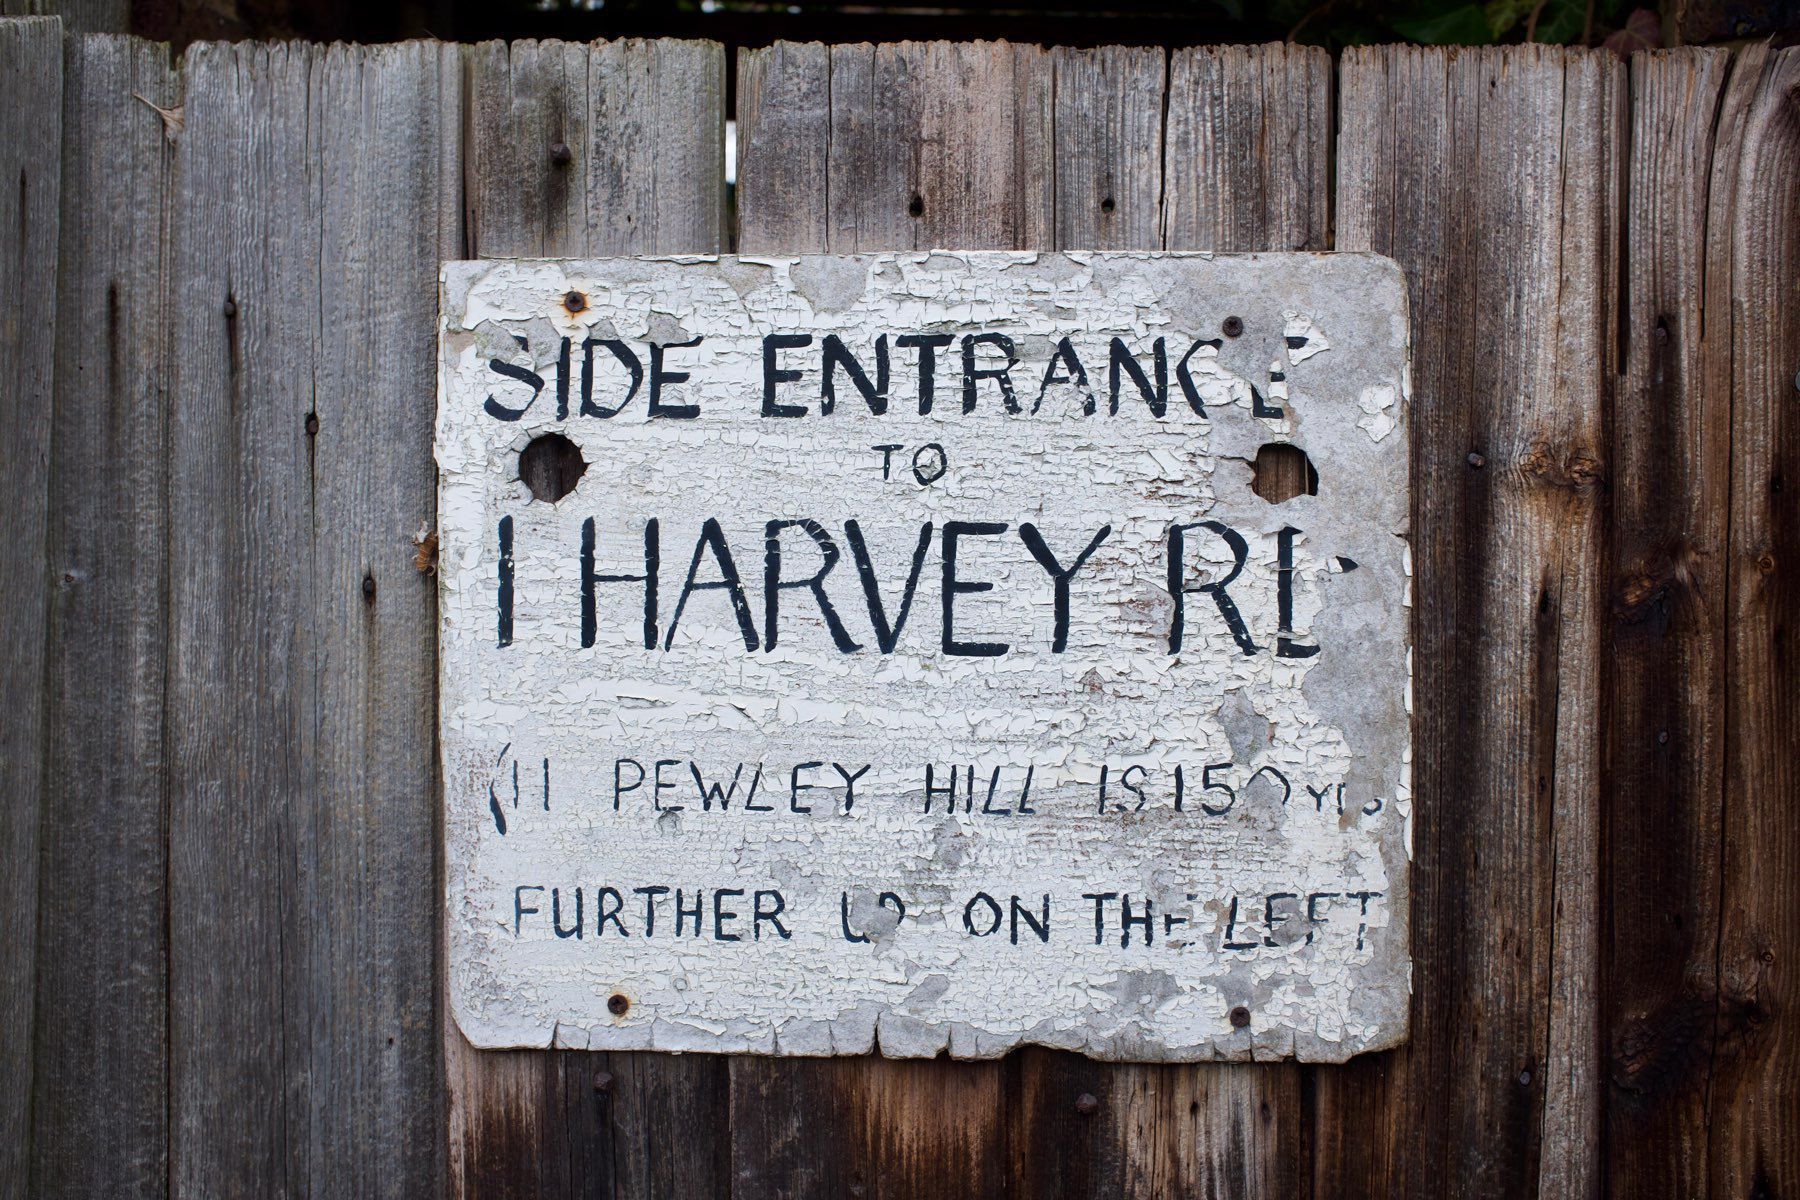 SIDE ENTRANCE
TO
1 HARVEY RD
(11 PEWLEY HILL IS 150 YDS
FURTHER UP ON THE LEFT